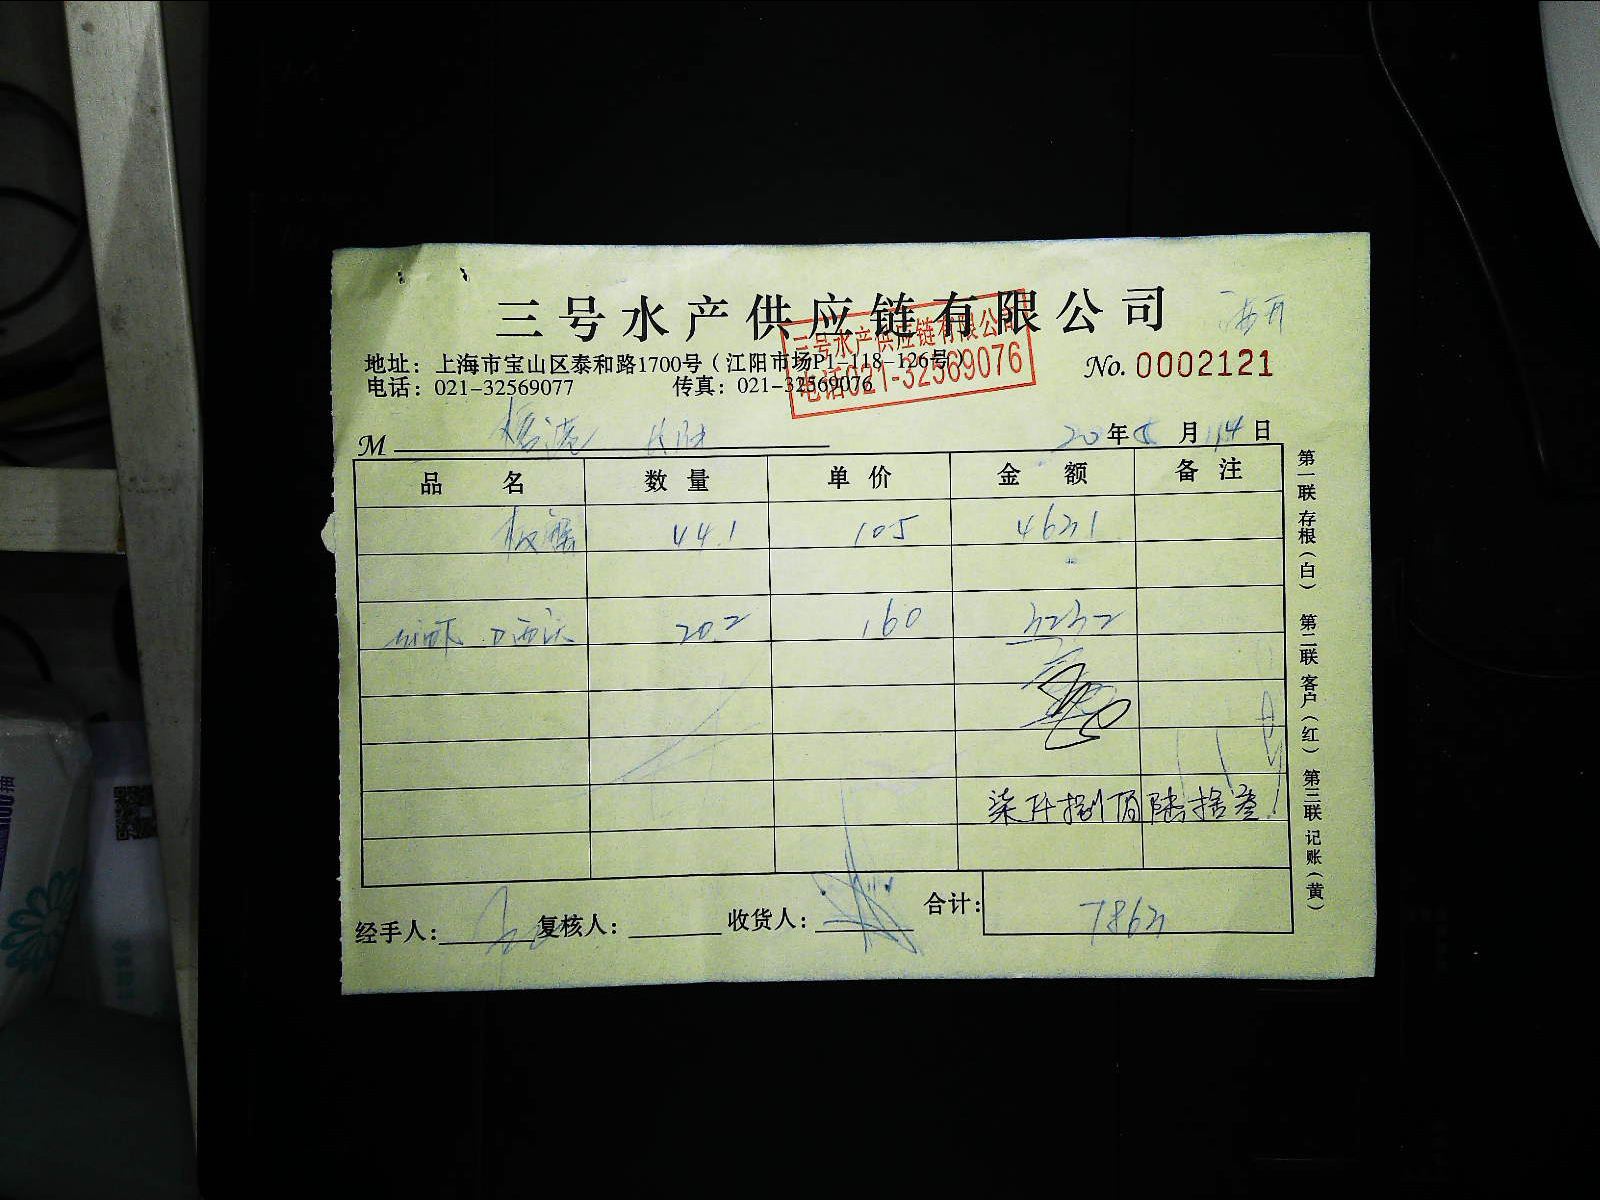 三号水产供应链有限公司
地址：上海市宝山区泰和路1700号（江阳市场P1-118-126号）
电话：021-32569077 传真：021-32569076
三号水产供应链有限公司
电话021-32569076
No. 0002121
M
20 年 月 14 日
品名 数量 单价 金额 备注
44.1 105 4631
20.2 160 3232
柒仟捌佰陆拾叁
经手人： 复核人： 收货人： 合计： 7863
第一联 存根（白） 第二联 客户（红） 第三联 记账（黄）